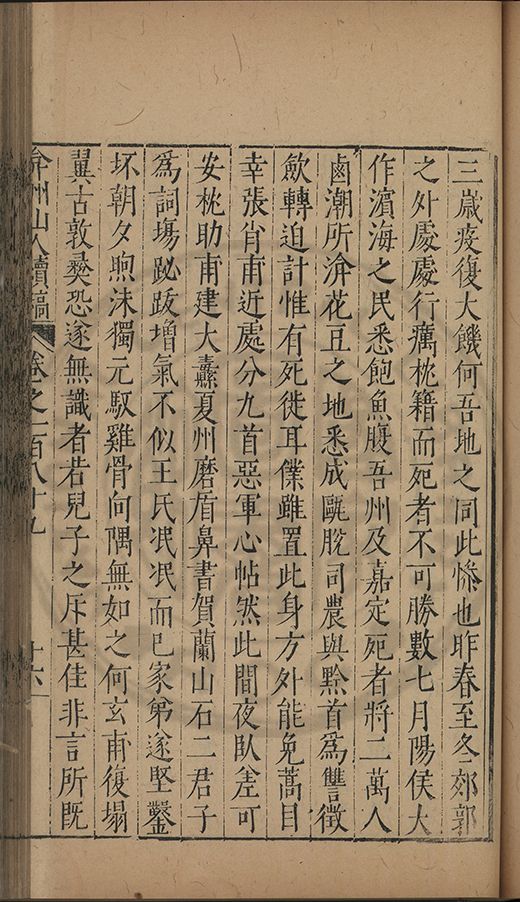 三歲疫復大饑何吾地之同此慘也昨春至冬郊郭
之外處處行癘枕籍而死者不可勝數七月陽侯大
作濱海之民悉飽魚腹吾州及嘉定死者將二萬人
鹵潮所渰花豆之地悉成甌脫司農與黔首為讐徵
歛轉迫計惟有死徙耳僕雖置此身方外能免蒿目
幸張肖甫近處分九首惡軍心帖然此間夜臥差可
安枕助甫建大纛夏州磨盾鼻書賀蘭山石二君子
為詞塲跛跋增氣不似王氏泯泯而已家弟遂堅鑿
坏朝夕喣沫獨元馭雞骨向隅無如之何玄甫復塌
翼古敦彜恐遂無識者若兒子之斥甚佳非言所既
弇州山人續稿 卷之一百八十九 十六